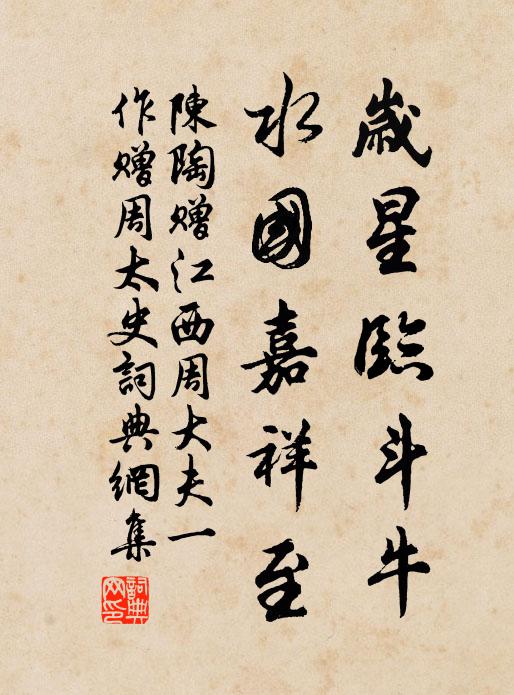 歲星臨斗牛
水國嘉祥至
陳陶贈江西周大夫一
作贈周太史詞典網集
詞典
网印